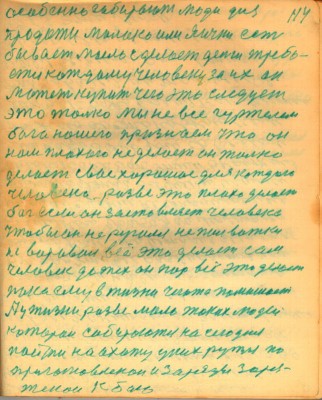 114
особенно забирают люди для
продати молоко или яички сам
бывает мысль сделает дети требо-
сти каждому человеку за их он
может купит чего это следует
это толко мы не все гуртом
бога нашего признаем что он
нам плохого не делает он толко
делает свае харошое для каждого
человека разве это плохо делает
бог если он заставляет человека
чтобы он не ругался не
не воровал всё это делает сам
человек до тех он пор всё это делает
пока ему в жизни чегото помешает
Ну скажи разве мало таких людей
которой сабираются на сегодня
пойти на ахату уних ружя по
приготовленои и заряды заре-
жении к бою